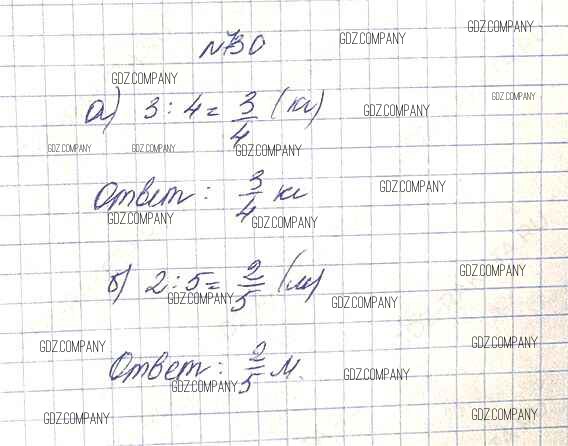 №730
GDZ.COMPANY GDZ.COMPANY
GDZ.COMPANY
GDZ.COMPANY
а) 3 : 4 = 3/4 (кг)
GDZ.COMPANY
GDZ.COMPANY GDZ.COMPANY GDZ.COMPANY
Ответ: 3/4 кг
GDZ.COMPANY
GDZ.COMPANY GDZ.COMPANY
б) 2 : 5 = 2/5 (м)
GDZ.COMPANY
GDZ.COMPANY GDZ.COMPANY
GDZ.COMPANY GDZ.COMPANY
Ответ: 2/5 м.
GDZ.COMPANY GDZ.COMPANY
GDZ.COMPANY GDZ.COMPANY